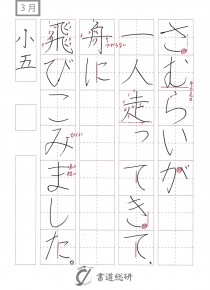 3月
さむらいが
一人走って
きて、
舟に
飛びこみ
ました。
小五
書道総研